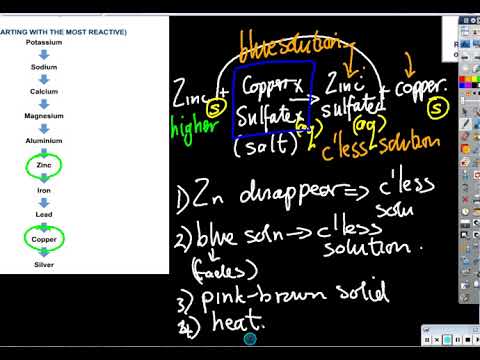 ARTING WITH THE MOST REACTIVE)
Potassium
Sodium
Calcium
Magnesium
Aluminium
Zinc
Iron
Lead
Copper
Silver
blue solution
Zinc + Copper → Zinc + copper
(s) Sulfate sulfate (s)
higher (salt) (aq) (aq)
c'less solution
1) Zn disappear => c'less
solu
2) blue soln → c'less
solution.
(fades)
3) pink-brown solid
4) heat.
R
o